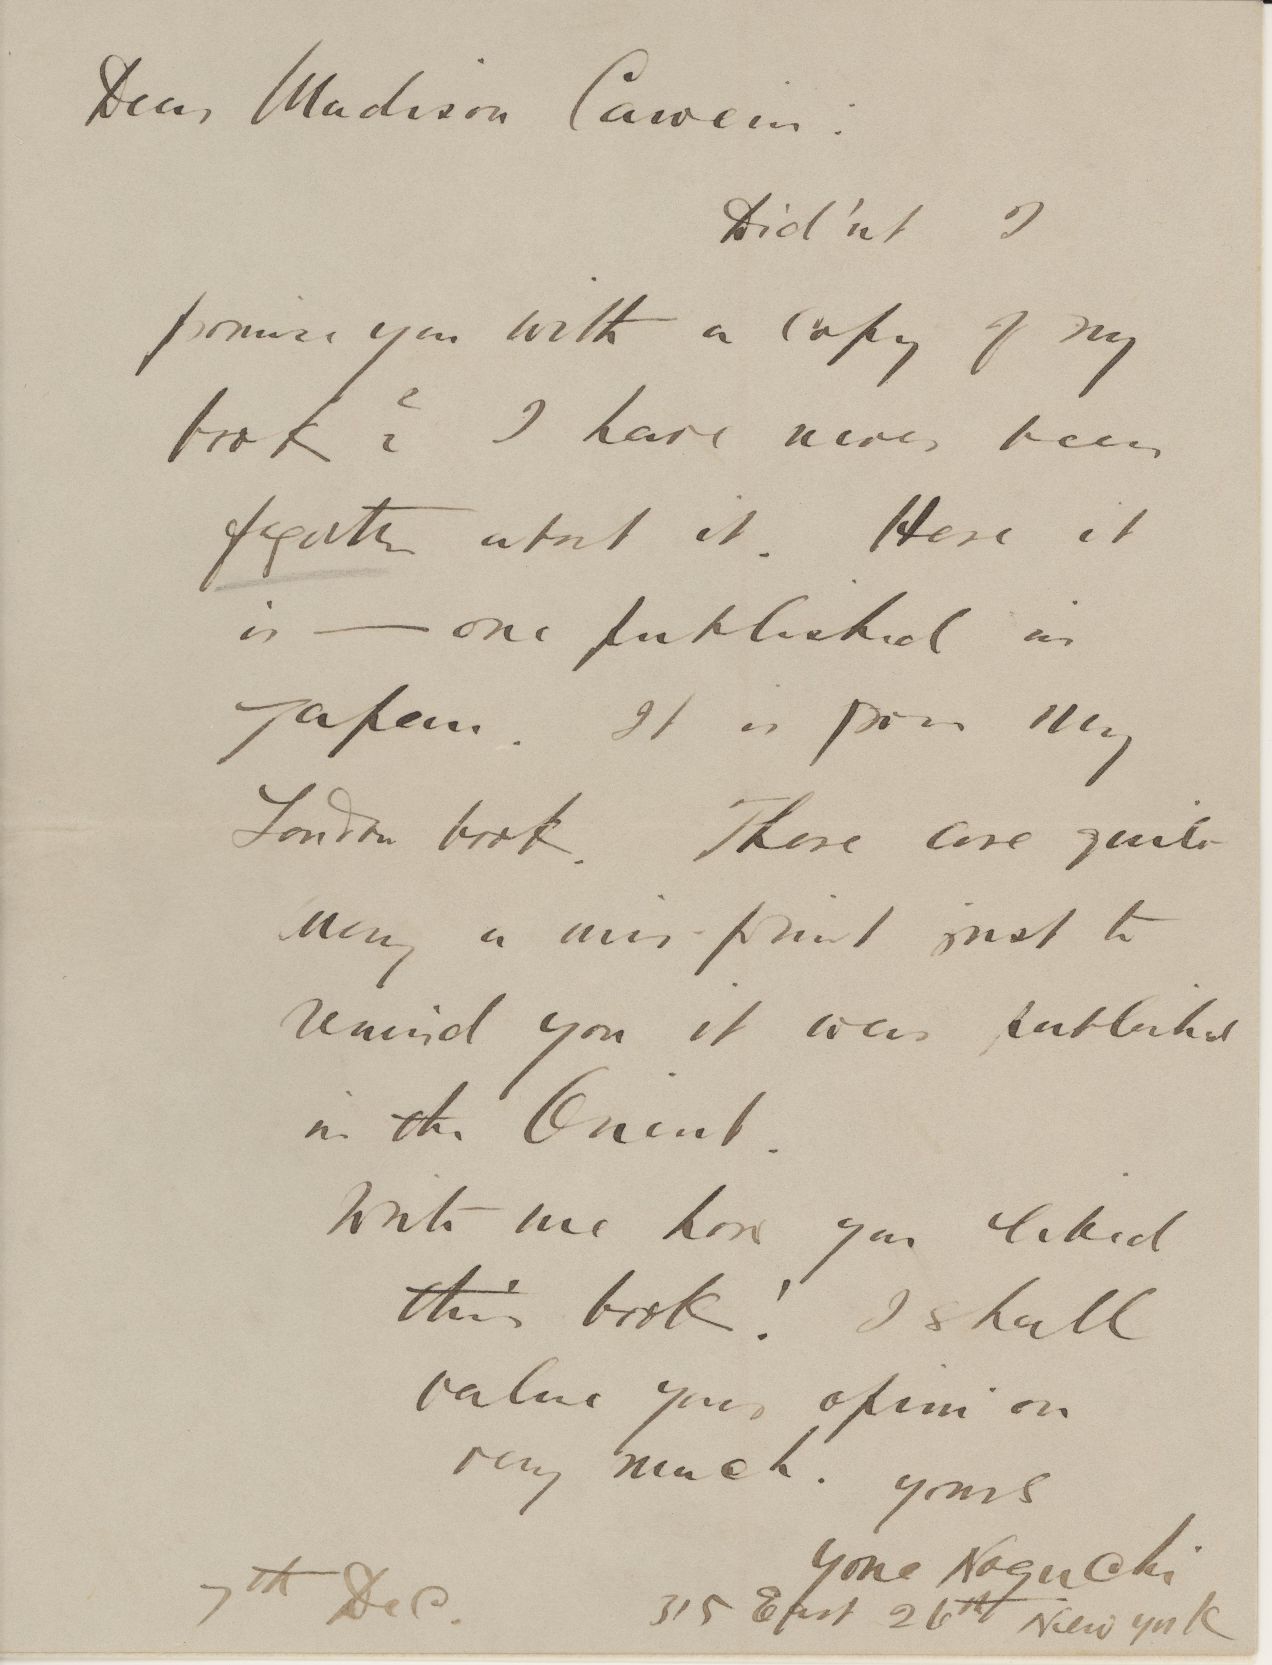 Dear Madison Cawein:
Did'nt I
promise you with a copy of my
book? I have never been
fegotten about it. Here it
is — one published in
Japan. It is from my
London book. There are quite
many a mis-print just to
remind you it was published
in the Orient.
Write me how you liked
this book! I shall
value your opinion
very much. Yours
Yone Noguchi
7th Dec. 315 East 26th New York